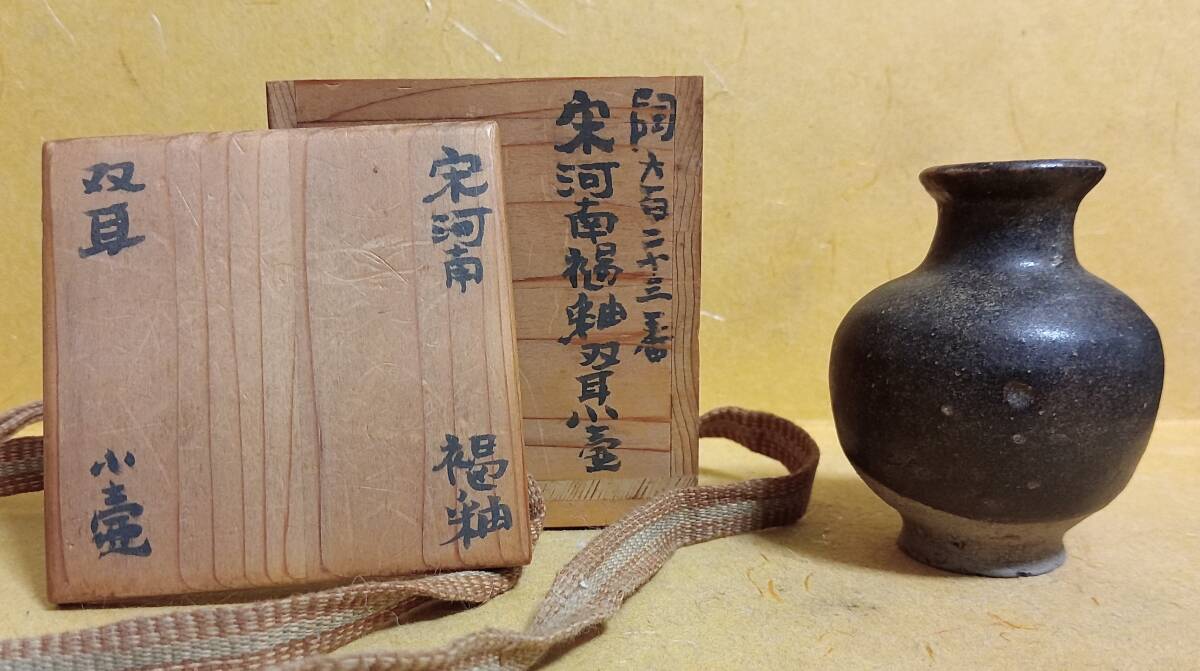 宋河南
褐釉
双耳
小壷
陶大百二十三番
宋河南褐釉双耳小壷